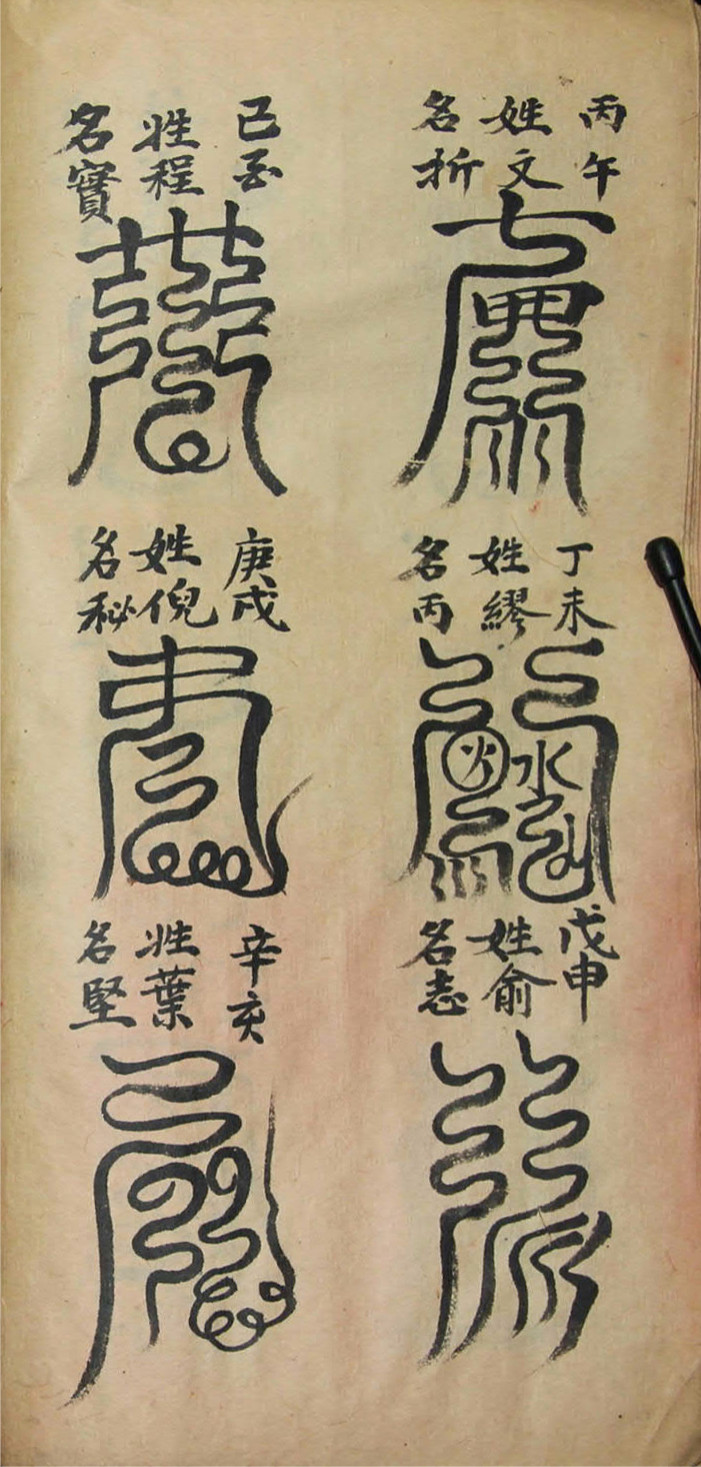 丙午
姓文
名折
丁未
姓繆
名丙
火
水
戊申
姓俞
名志
己酉
姓程
名寳
庚戌
姓倪
名秘
辛亥
姓葉
名堅